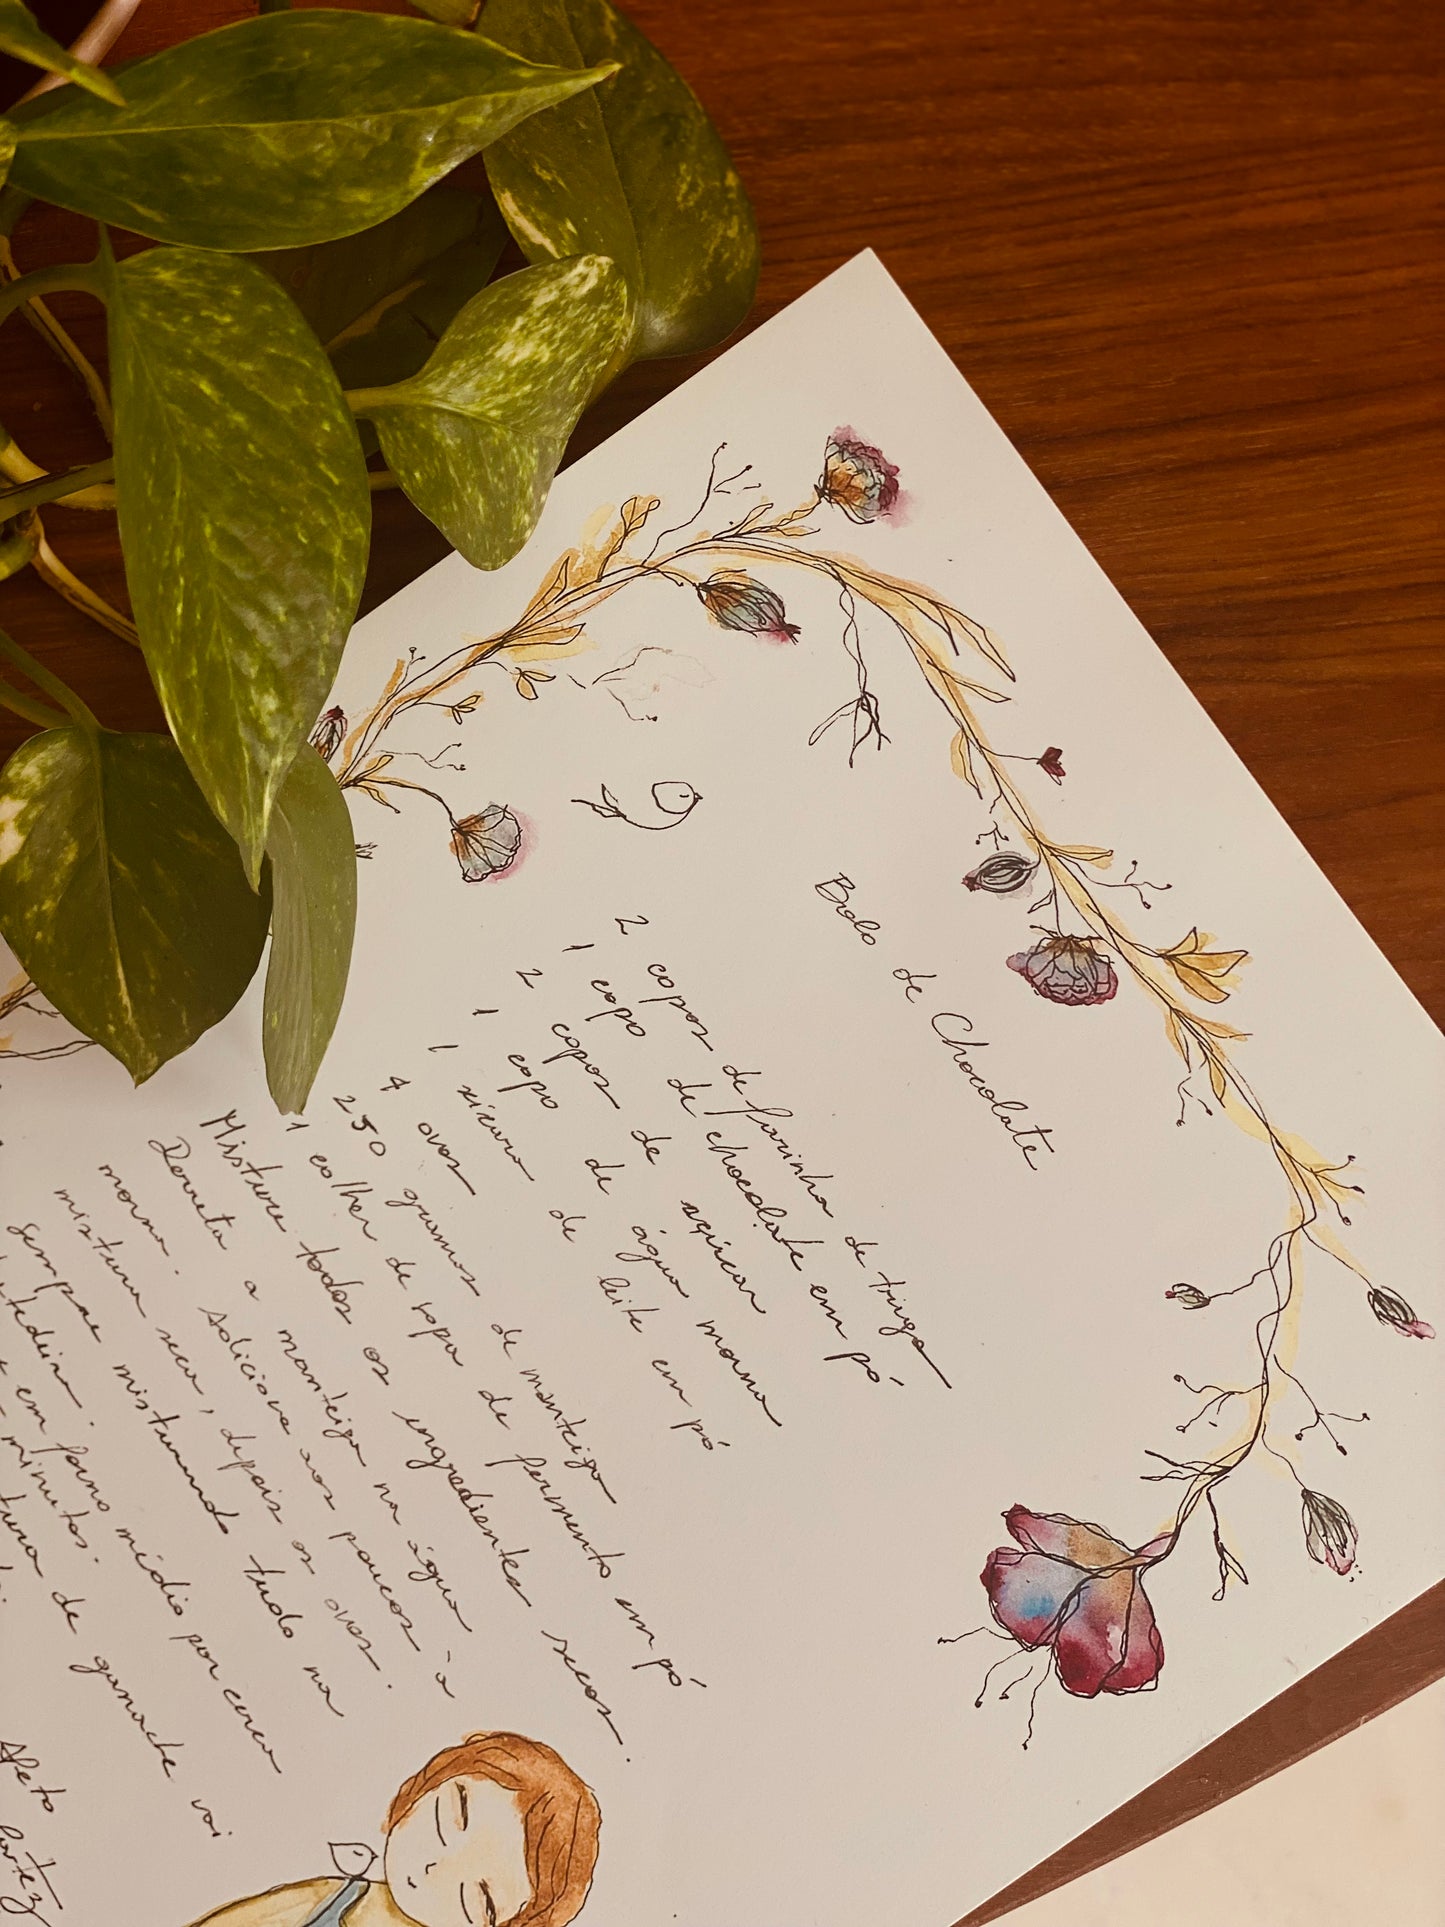 Bolo de Chocolate
2 copos de farinha de trigo
1 copo de chocolate em pó
2 copos de açúcar
1 copo de água morna
1 xícara de leite em pó
4 ovos
250 gramas de manteiga
1 colher de sopa de fermento em pó
Misture todos os ingredientes secos.
Derreta a manteiga na água
morna. Adicione aos poucos à
mistura seca, depois os ovos.
Sempre misturando tudo na
em forno médio por cerca
minutos.
de ganache vai